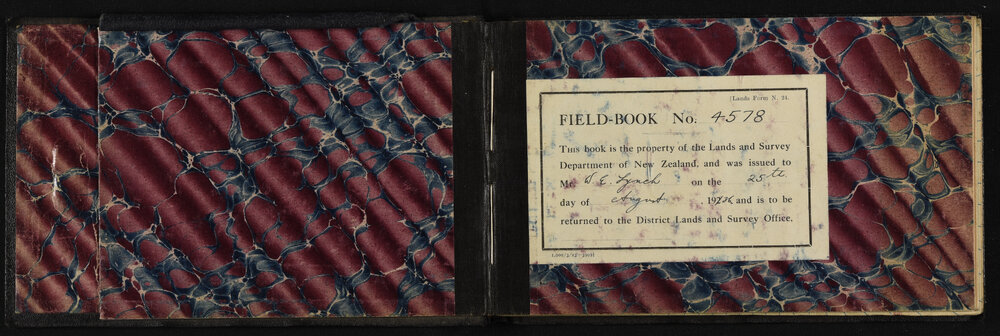 [Lands Form N. 24.
FIELD-BOOK No. 4578
THIS book is the property of the Lands and Survey
Department of New Zealand, and was issued to
Mr. E. Lynch on the 25th
day of August and is to be
returned to the District Lands and Survey Office.